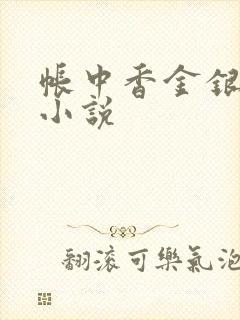 帳中香金銀
小說
翻滾可樂氣泡